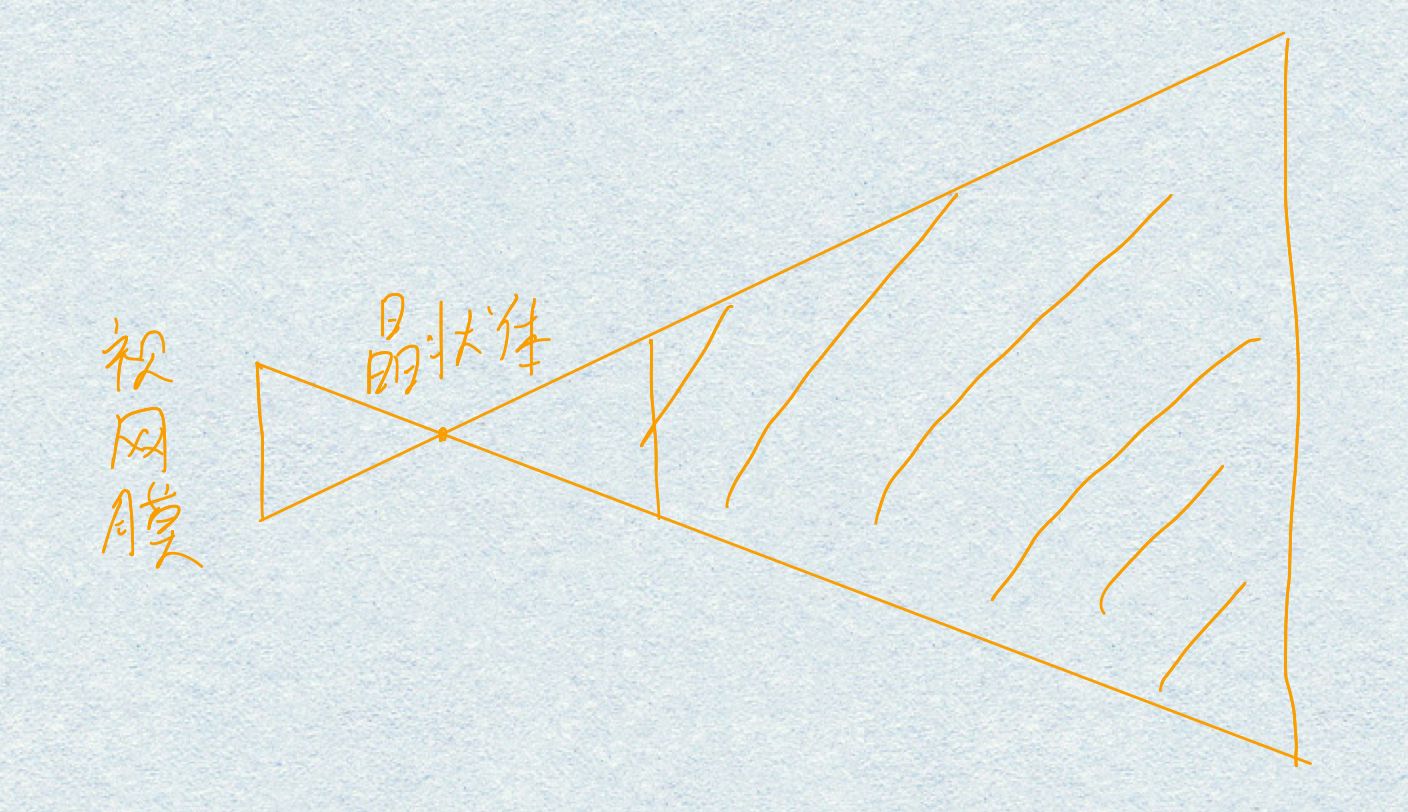 视网膜
晶状体